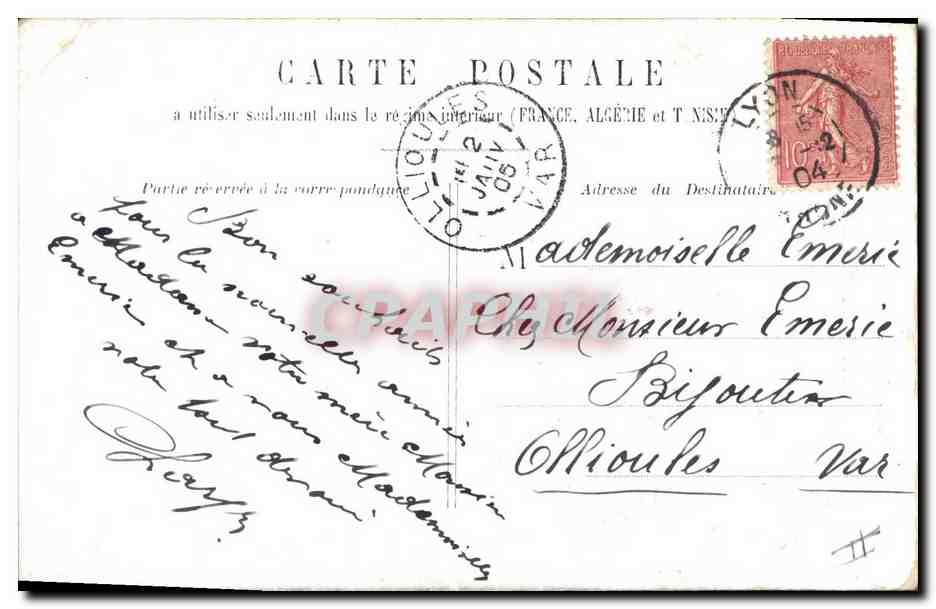 CARTE POSTALE
a utiliser seulement dans le régime intérieur (FRANCE, ALGÉRIE et TUNISIE)
Partie réservée à la correspondance
Adresse du Destinataire
REPUBLIQUE FRANÇAISE
10
LYON
15
2
04
RHONE
OLLIOULES
2
JANV
05
VAR
Bon souhaits
pour la nouvelle année
a Madame votre mère Monsieur
Emerie et a vous Mademoiselle
votre tout dévoué
Mademoiselle Emerie
Chez Monsieur Emerie
Bijoutier
Ollioules Var
CPAPHIL
II